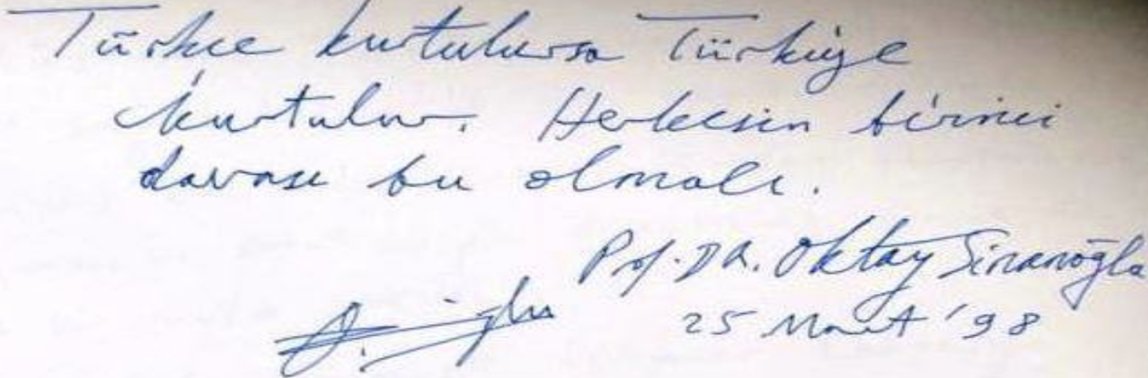 Türkçe kurtulursa Türkiye
kurtulur. Herkesin birinci
davası bu olmalı.
Prof. DR. Oktay Sinanoğlu
25 Mart '98